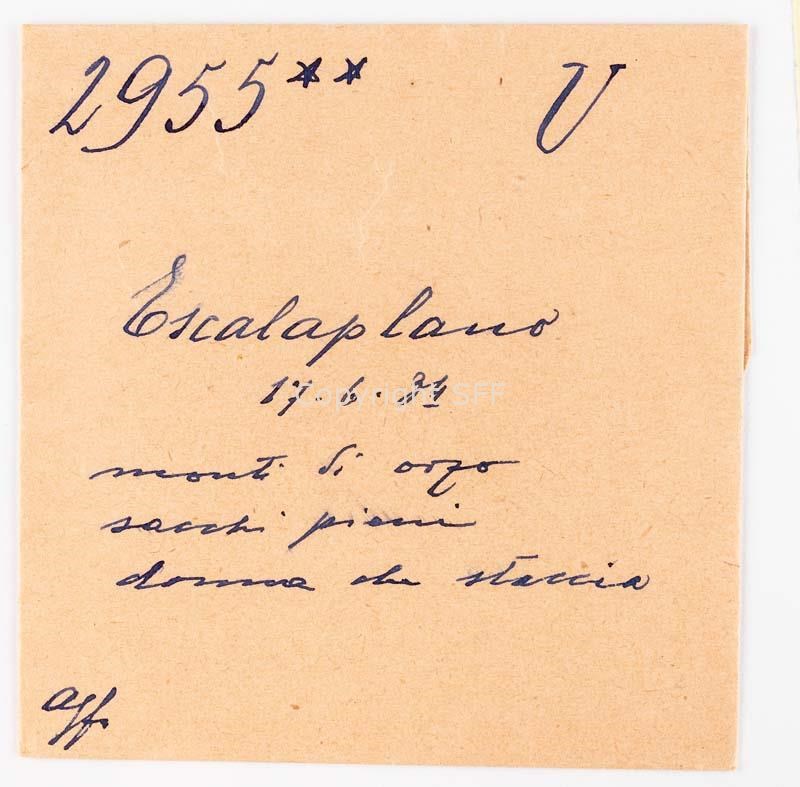 2955** V
Escalaplano
17. 6.
Copyright SFF
monti di orzo
sacchi pieni
donna che staccia
agf.